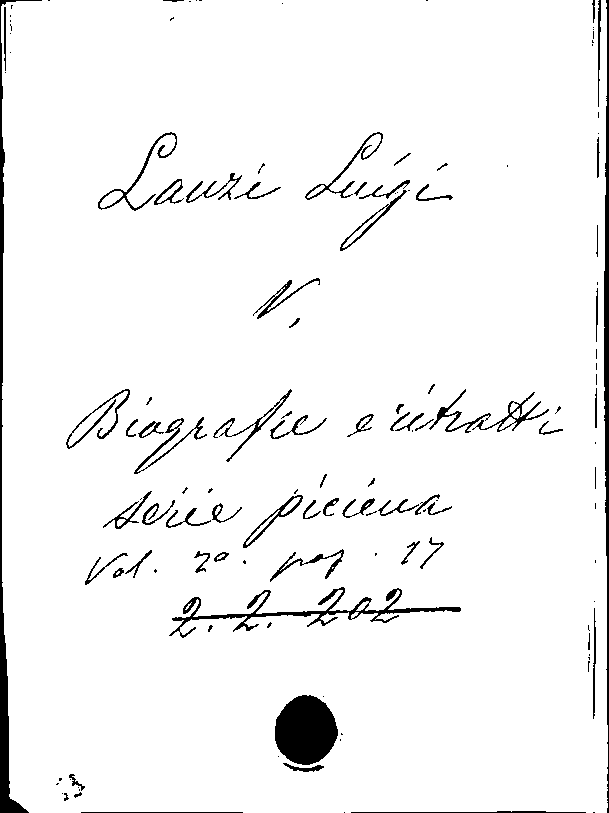 Lanzi Luigi
V.
Biografie e ritratti
serie picena
Vol. 2º. pag. 17
2. 2. 202